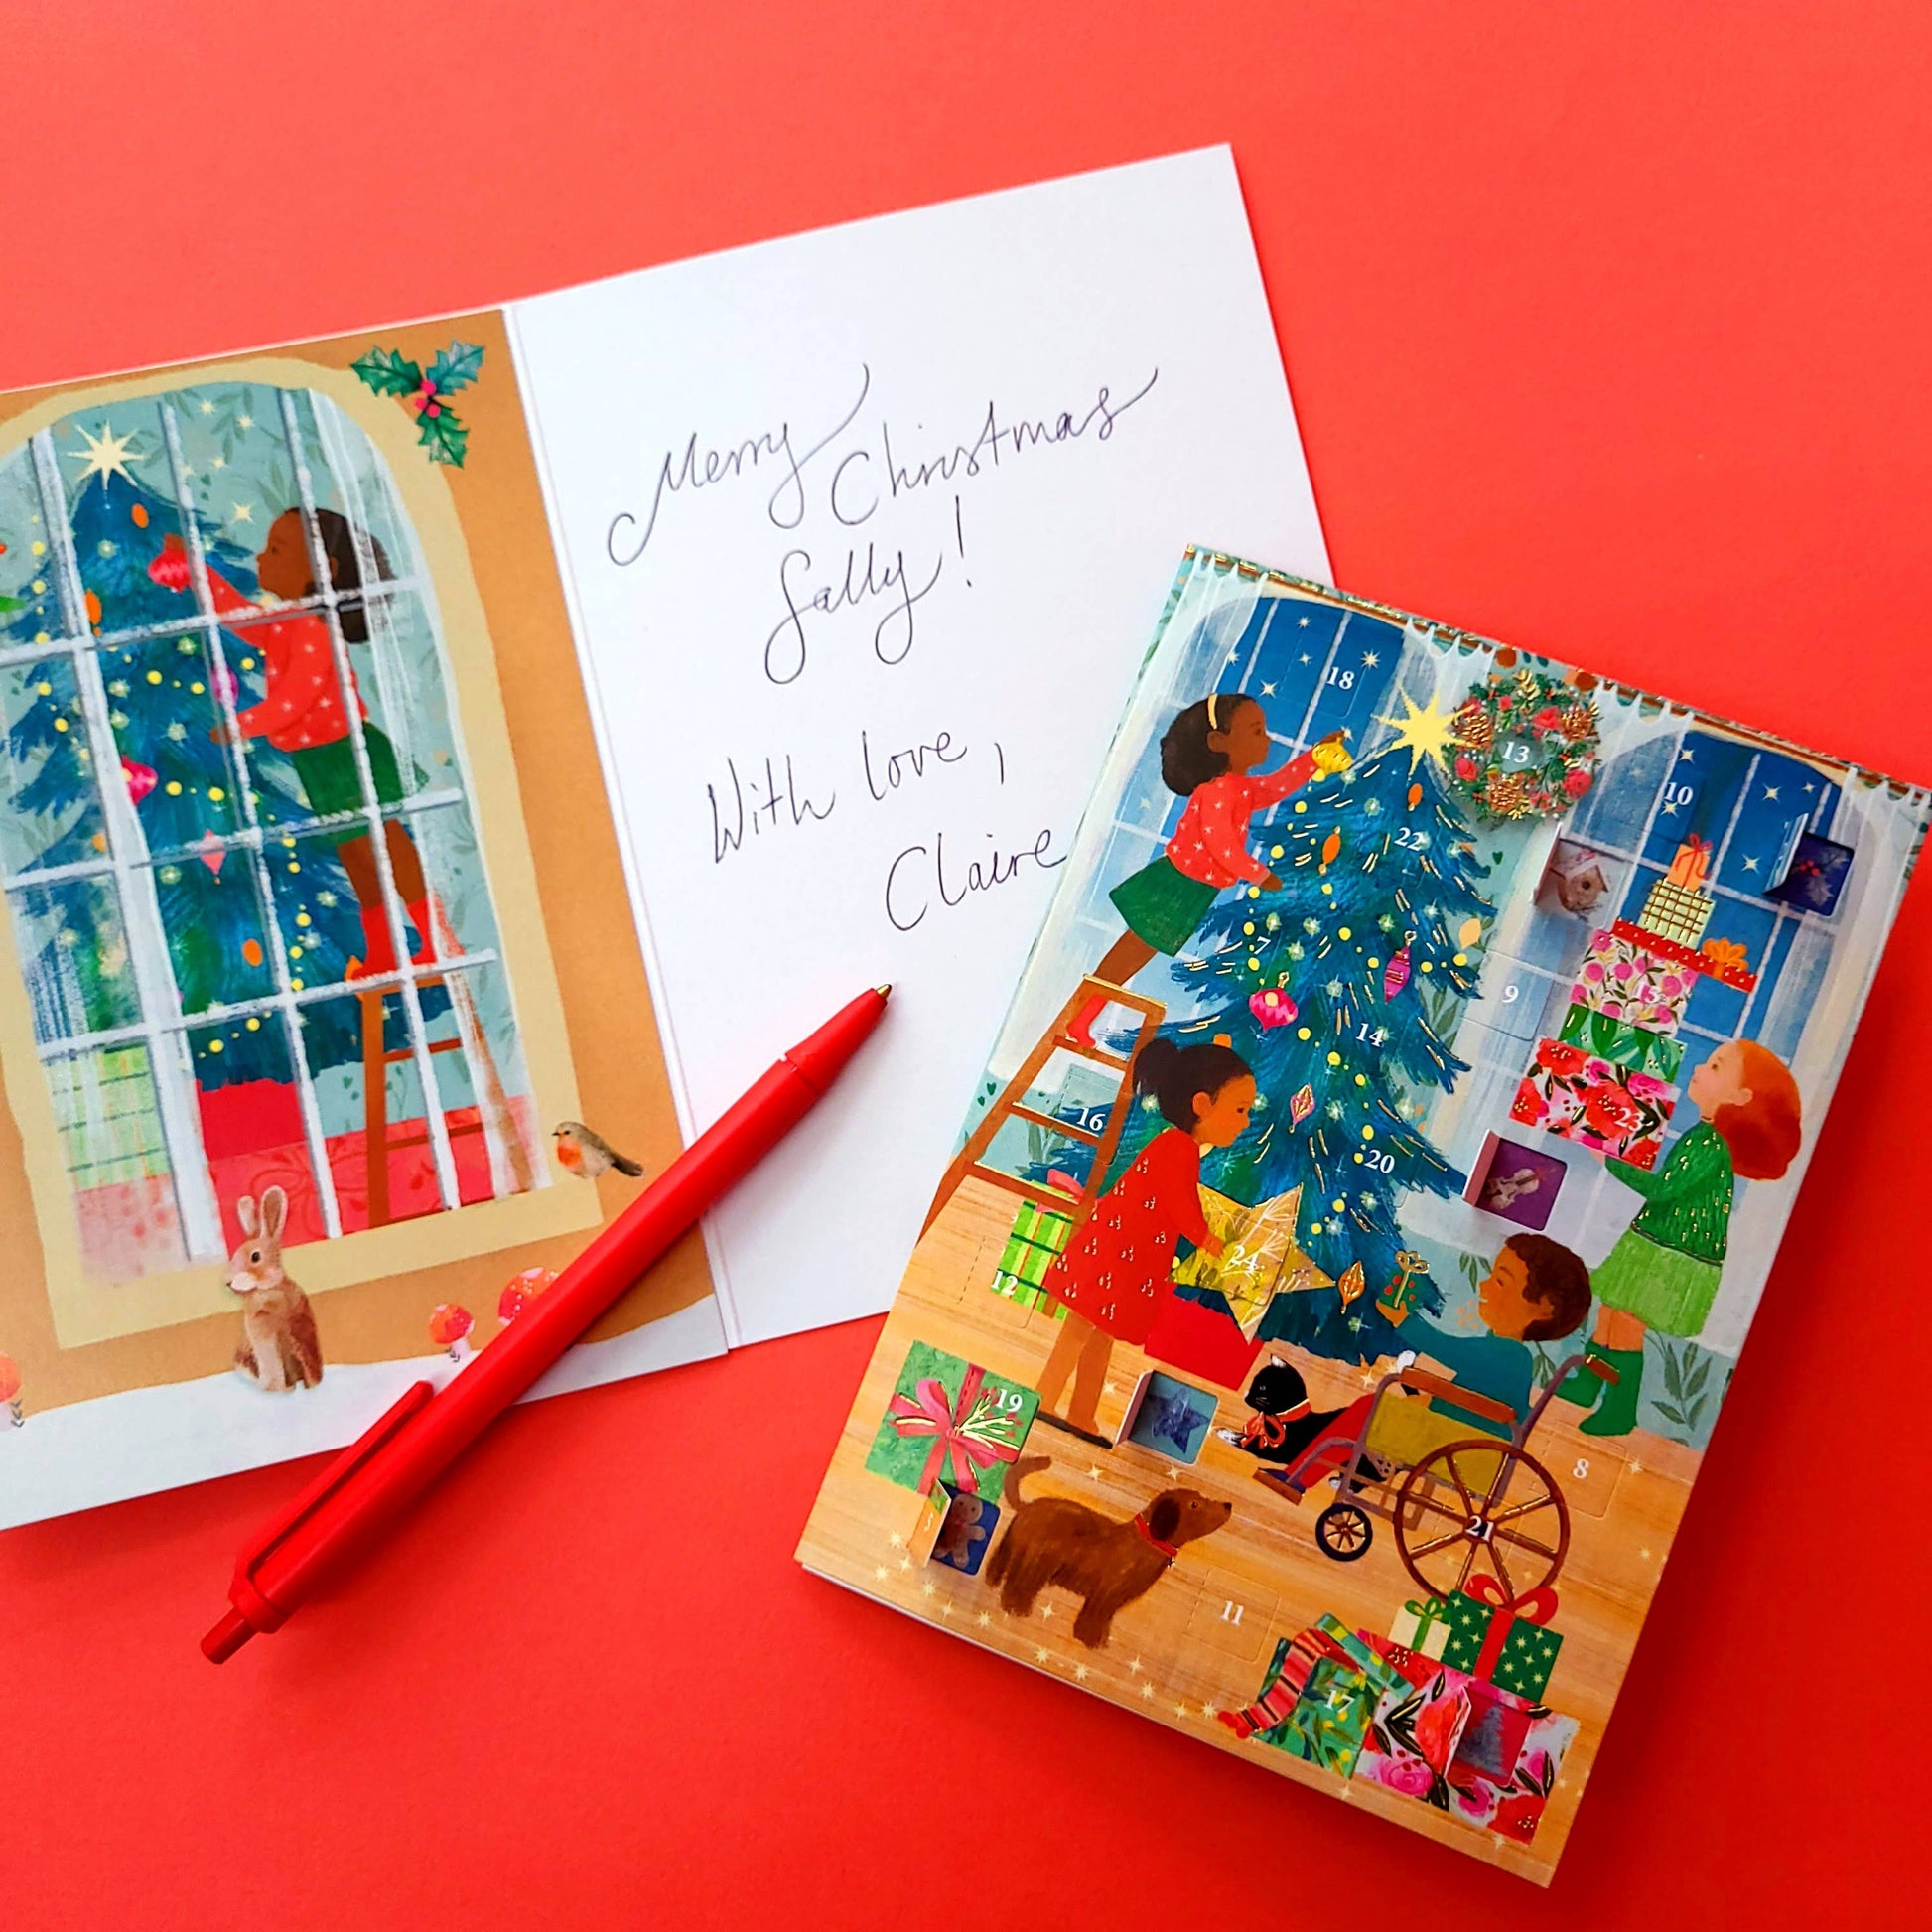 Merry Christmas
Sally!
With love,
Claire
18
13
10
22
7
9
15
14
23
16
20
24
12
19
8
21
3
11
17